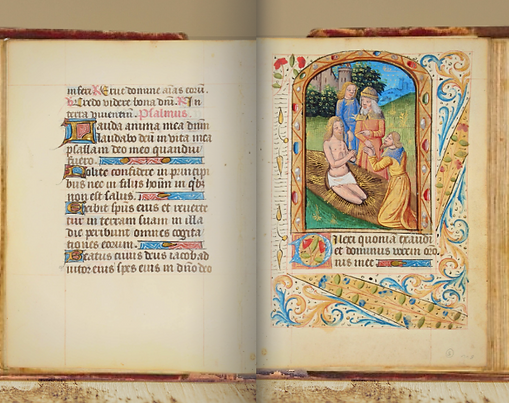 inferi Erue domine aīas eorū.
Credo videre bona dn̄i In
terra viventiū. Psalmus.
Lauda anima mea dn̄m
laudabo deū in vita mea
psallam deo meo quandiu
fuero.
Nolite confidere in principi
bus nec in filiis hoīm in qb3
non est salus.
Exibit spūs eius et reverte
tur in terram suam in illa
die peribunt omnes cogita
tiones eorum.
Beatus cuius deus iacob ad
iutor eius spes eius in dn̄o deo
Dilexi quoniā exaudi
et dominus vocem oro
nis mee